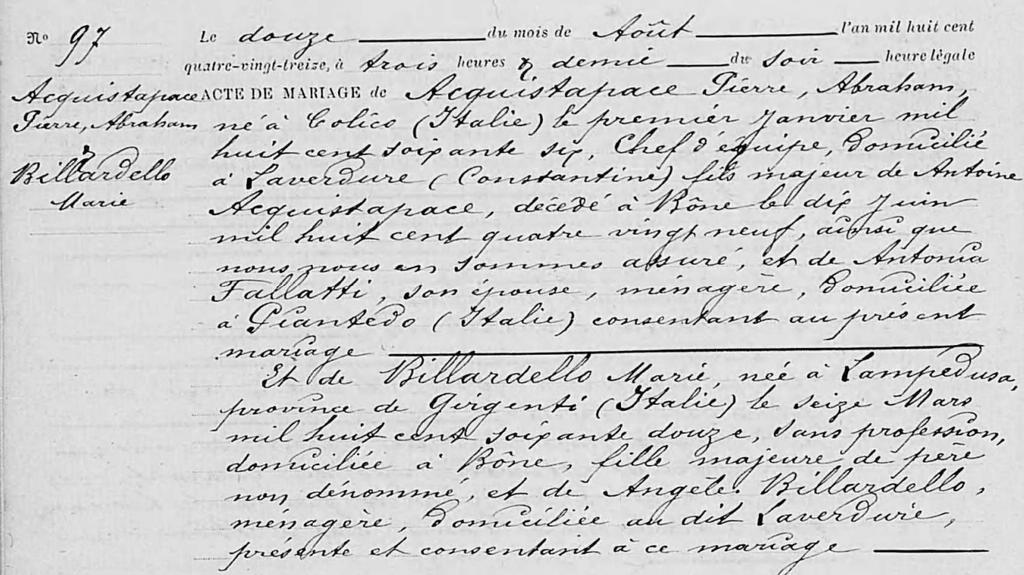 N° 97
Acquistapace
Pierre, Abraham
&
Billardello
Marie
Le douze du mois de Août l'an mil huit cent
quatre-vingt-treize, à trois heures & demie du soir heure légale
ACTE DE MARIAGE de Acquistapace Pierre, Abraham,
né à Colico (Italie) le premier Janvier mil
huit cent soixante six, Chef d'équipe, domicilié
à Laverdure (Constantine) fils majeur de Antoine
Acquistapace, décédé à Bône le dix Juin
mil huit cent quatre vingt neuf, ainsi que
nous nous en sommes assuré, et de Antonia
Fallatti, son épouse, ménagère, domiciliée
à Piantédo (Italie) consentant au présent
mariage
Et de Billardello Marie, née à Lampédusa,
province de Girgenti (Italie) le seize Mars
mil huit cent soixante douze, sans profession,
domiciliée à Bône, fille majeure de père
non dénommé, et de Angèle Billardello,
ménagère, domiciliée au dit Laverdure,
présente et consentant à ce mariage